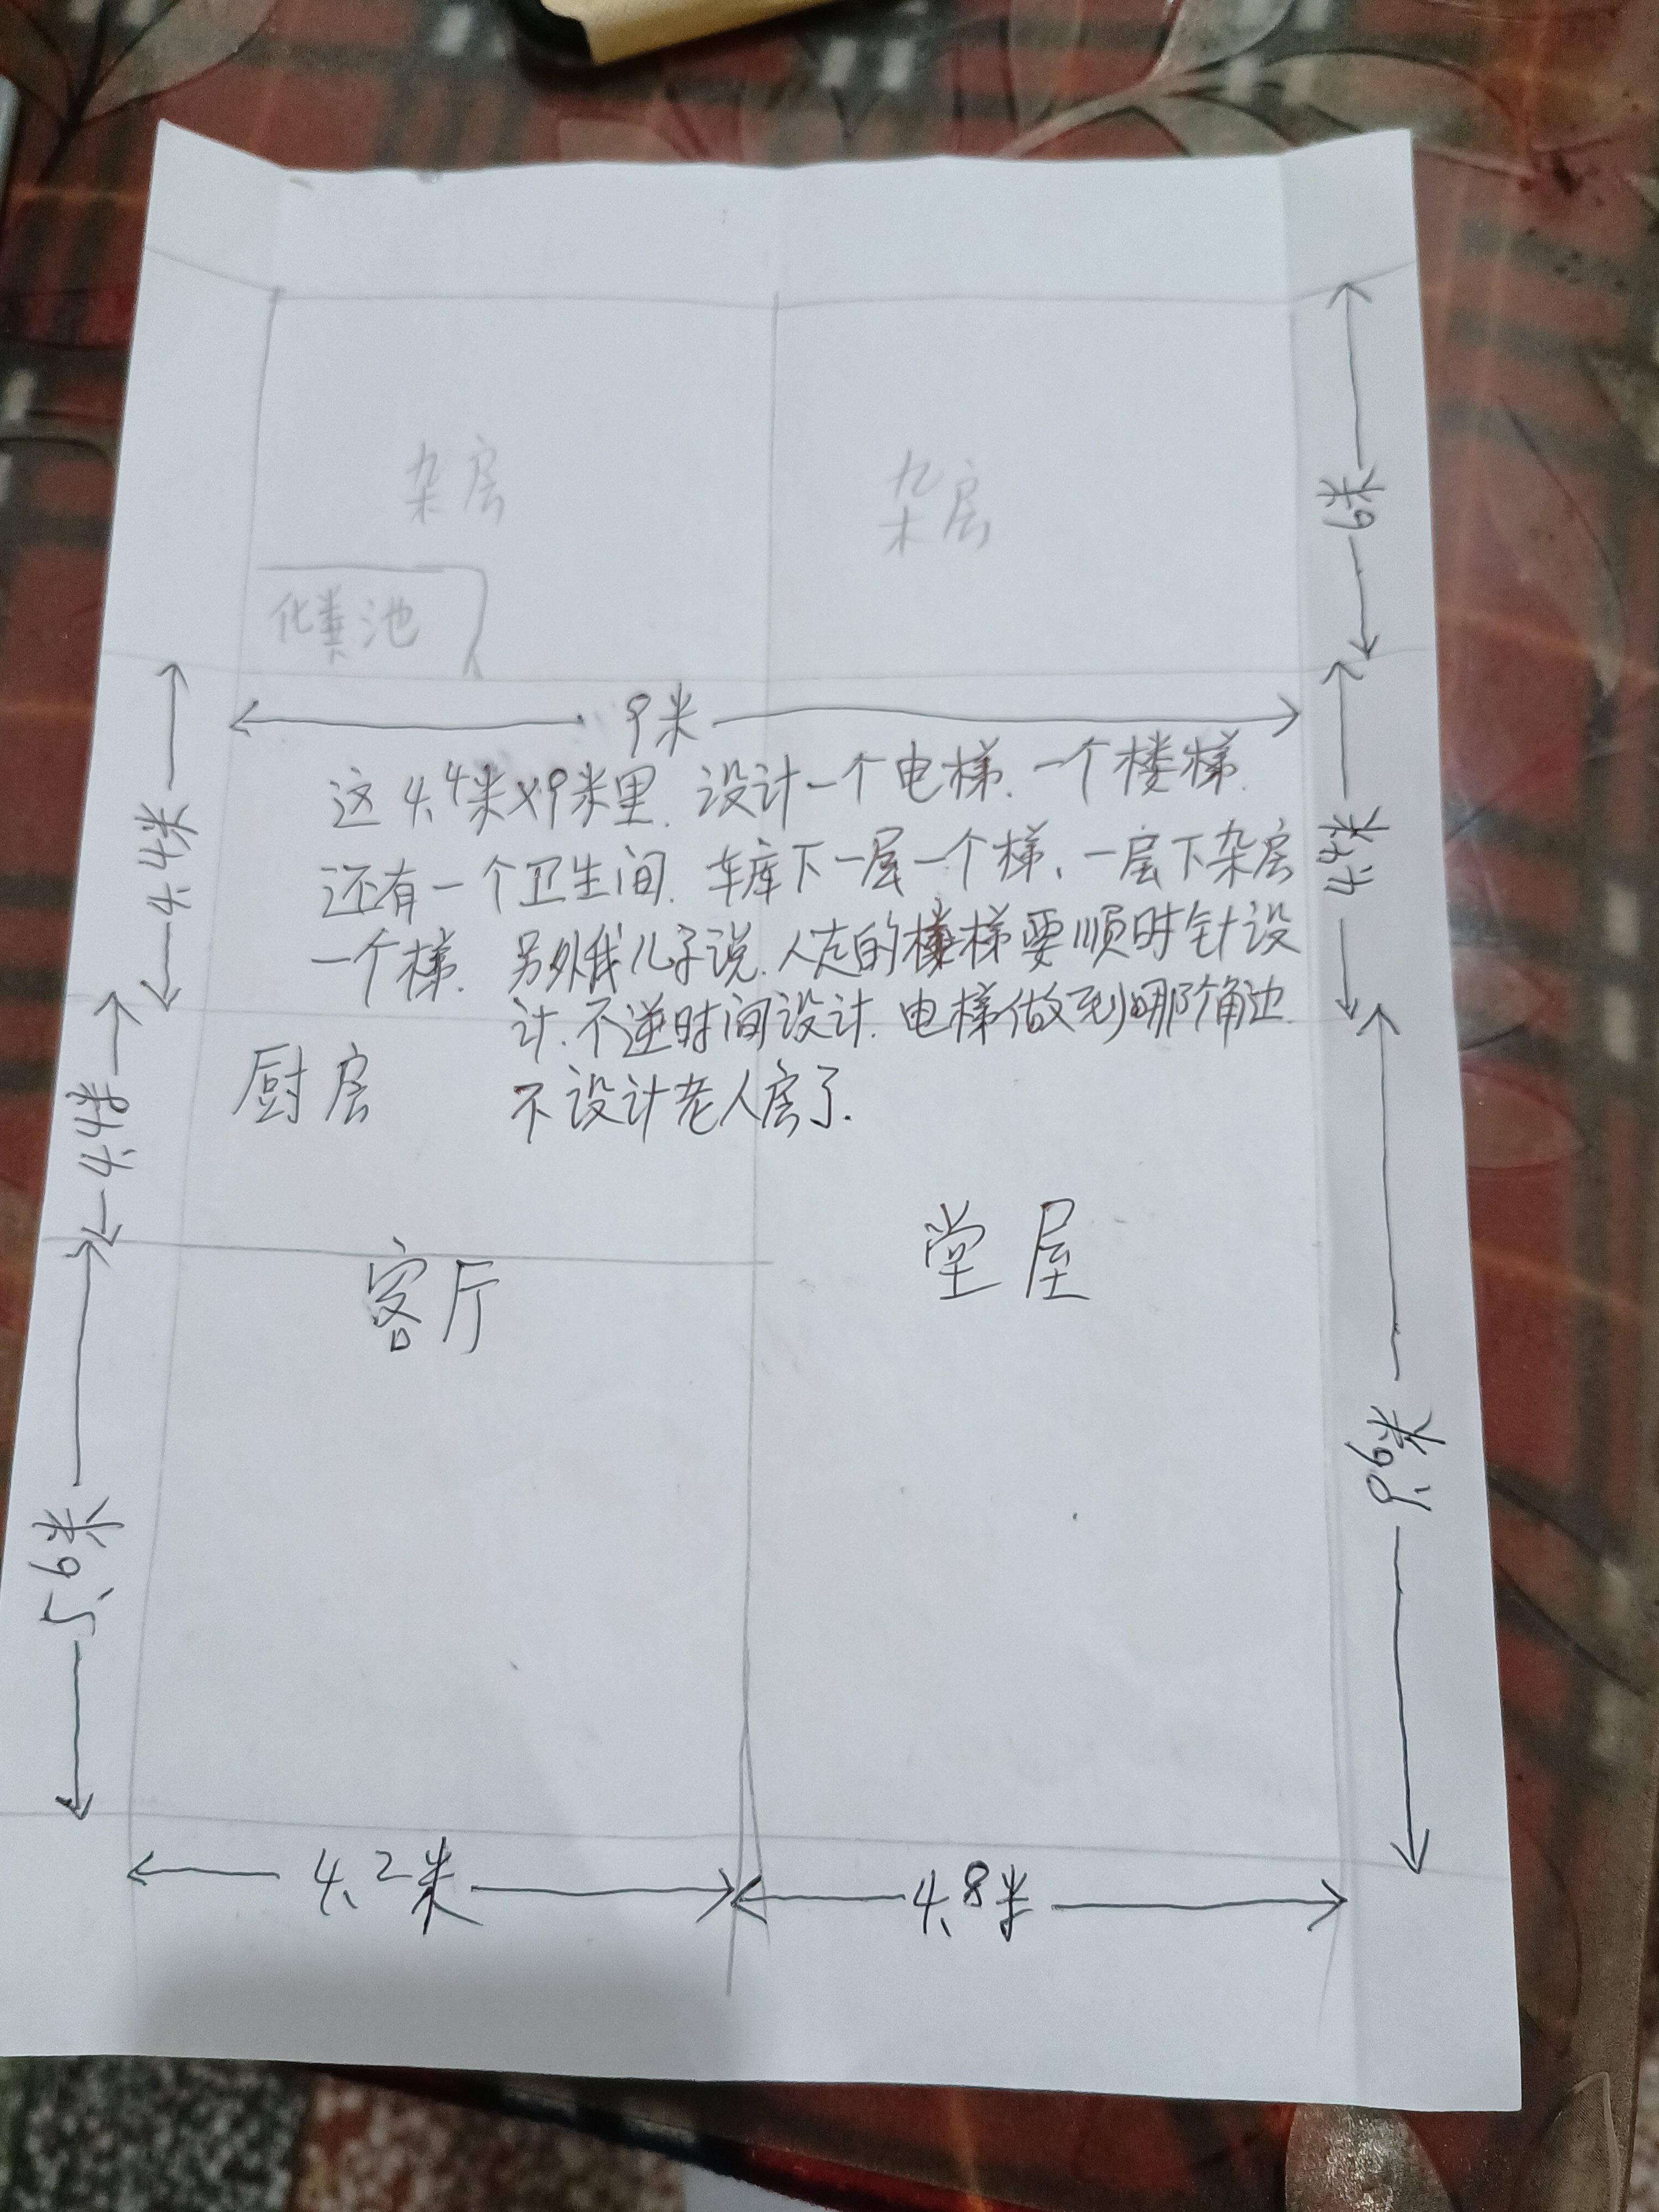 杂房
杂房
化粪池
6米
9米
这4.4米x9米里.设计一个电梯.一个楼梯.
还有一个卫生间.车库下一层一个梯、一层下杂房
一个梯.另外我儿子说.人走的楼梯要顺时针设
计.不逆时间设计.电梯做到哪个角边.
不设计老人房了.
4.4米
4.4米
厨房
4.4米
客厅
堂屋
5.6米
9.6米
4.2米
4.8米